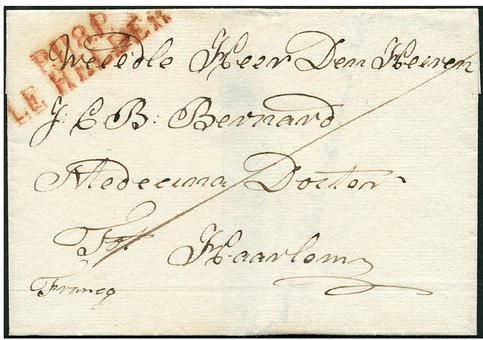 P118P.
LE HELDER
Weledle Heer Den Heeren
J: C B: Bernard
Medecina Doctor
Tot Haarlem
Franco